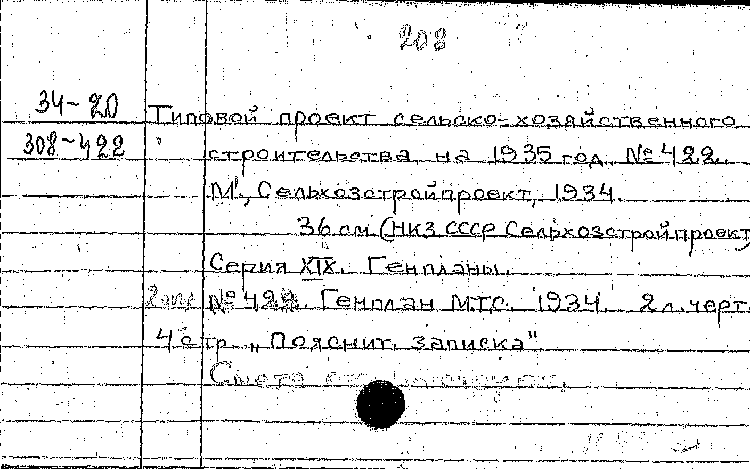 208
34-20
Типовой проект сельско-хозяйственного
308-422
строительства на 1935 год. № 422.
М., Сельхозстройпроект, 1934.
36 см. (НКЗ СССР Сельхозстройпроект)
Серия XIX. Генпланы.
№ 422. Генплан М.Т.С. 1934. 2 л. черт.
4 стр. „Пояснит. записка"
Смета